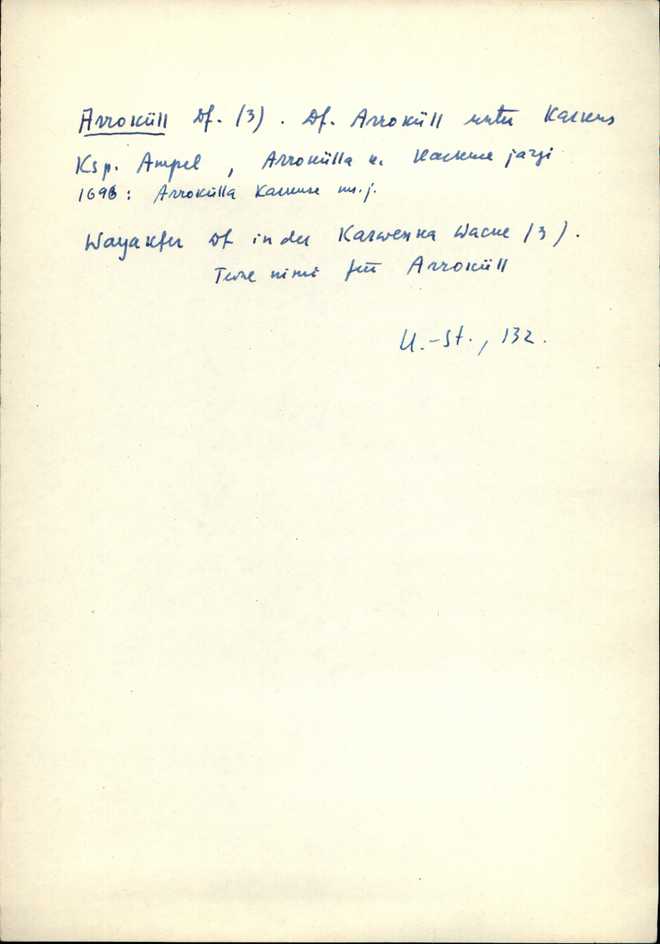 Arroküll Df. (3). Df. Arroküll unter Karkus
Ksp. Ampel, Arroküla k. järgi
1696: Arrokülla m.j.
Wayakfer Df in der Wacke (3).
Teine nimi für Arroküll
U.-St., 132.